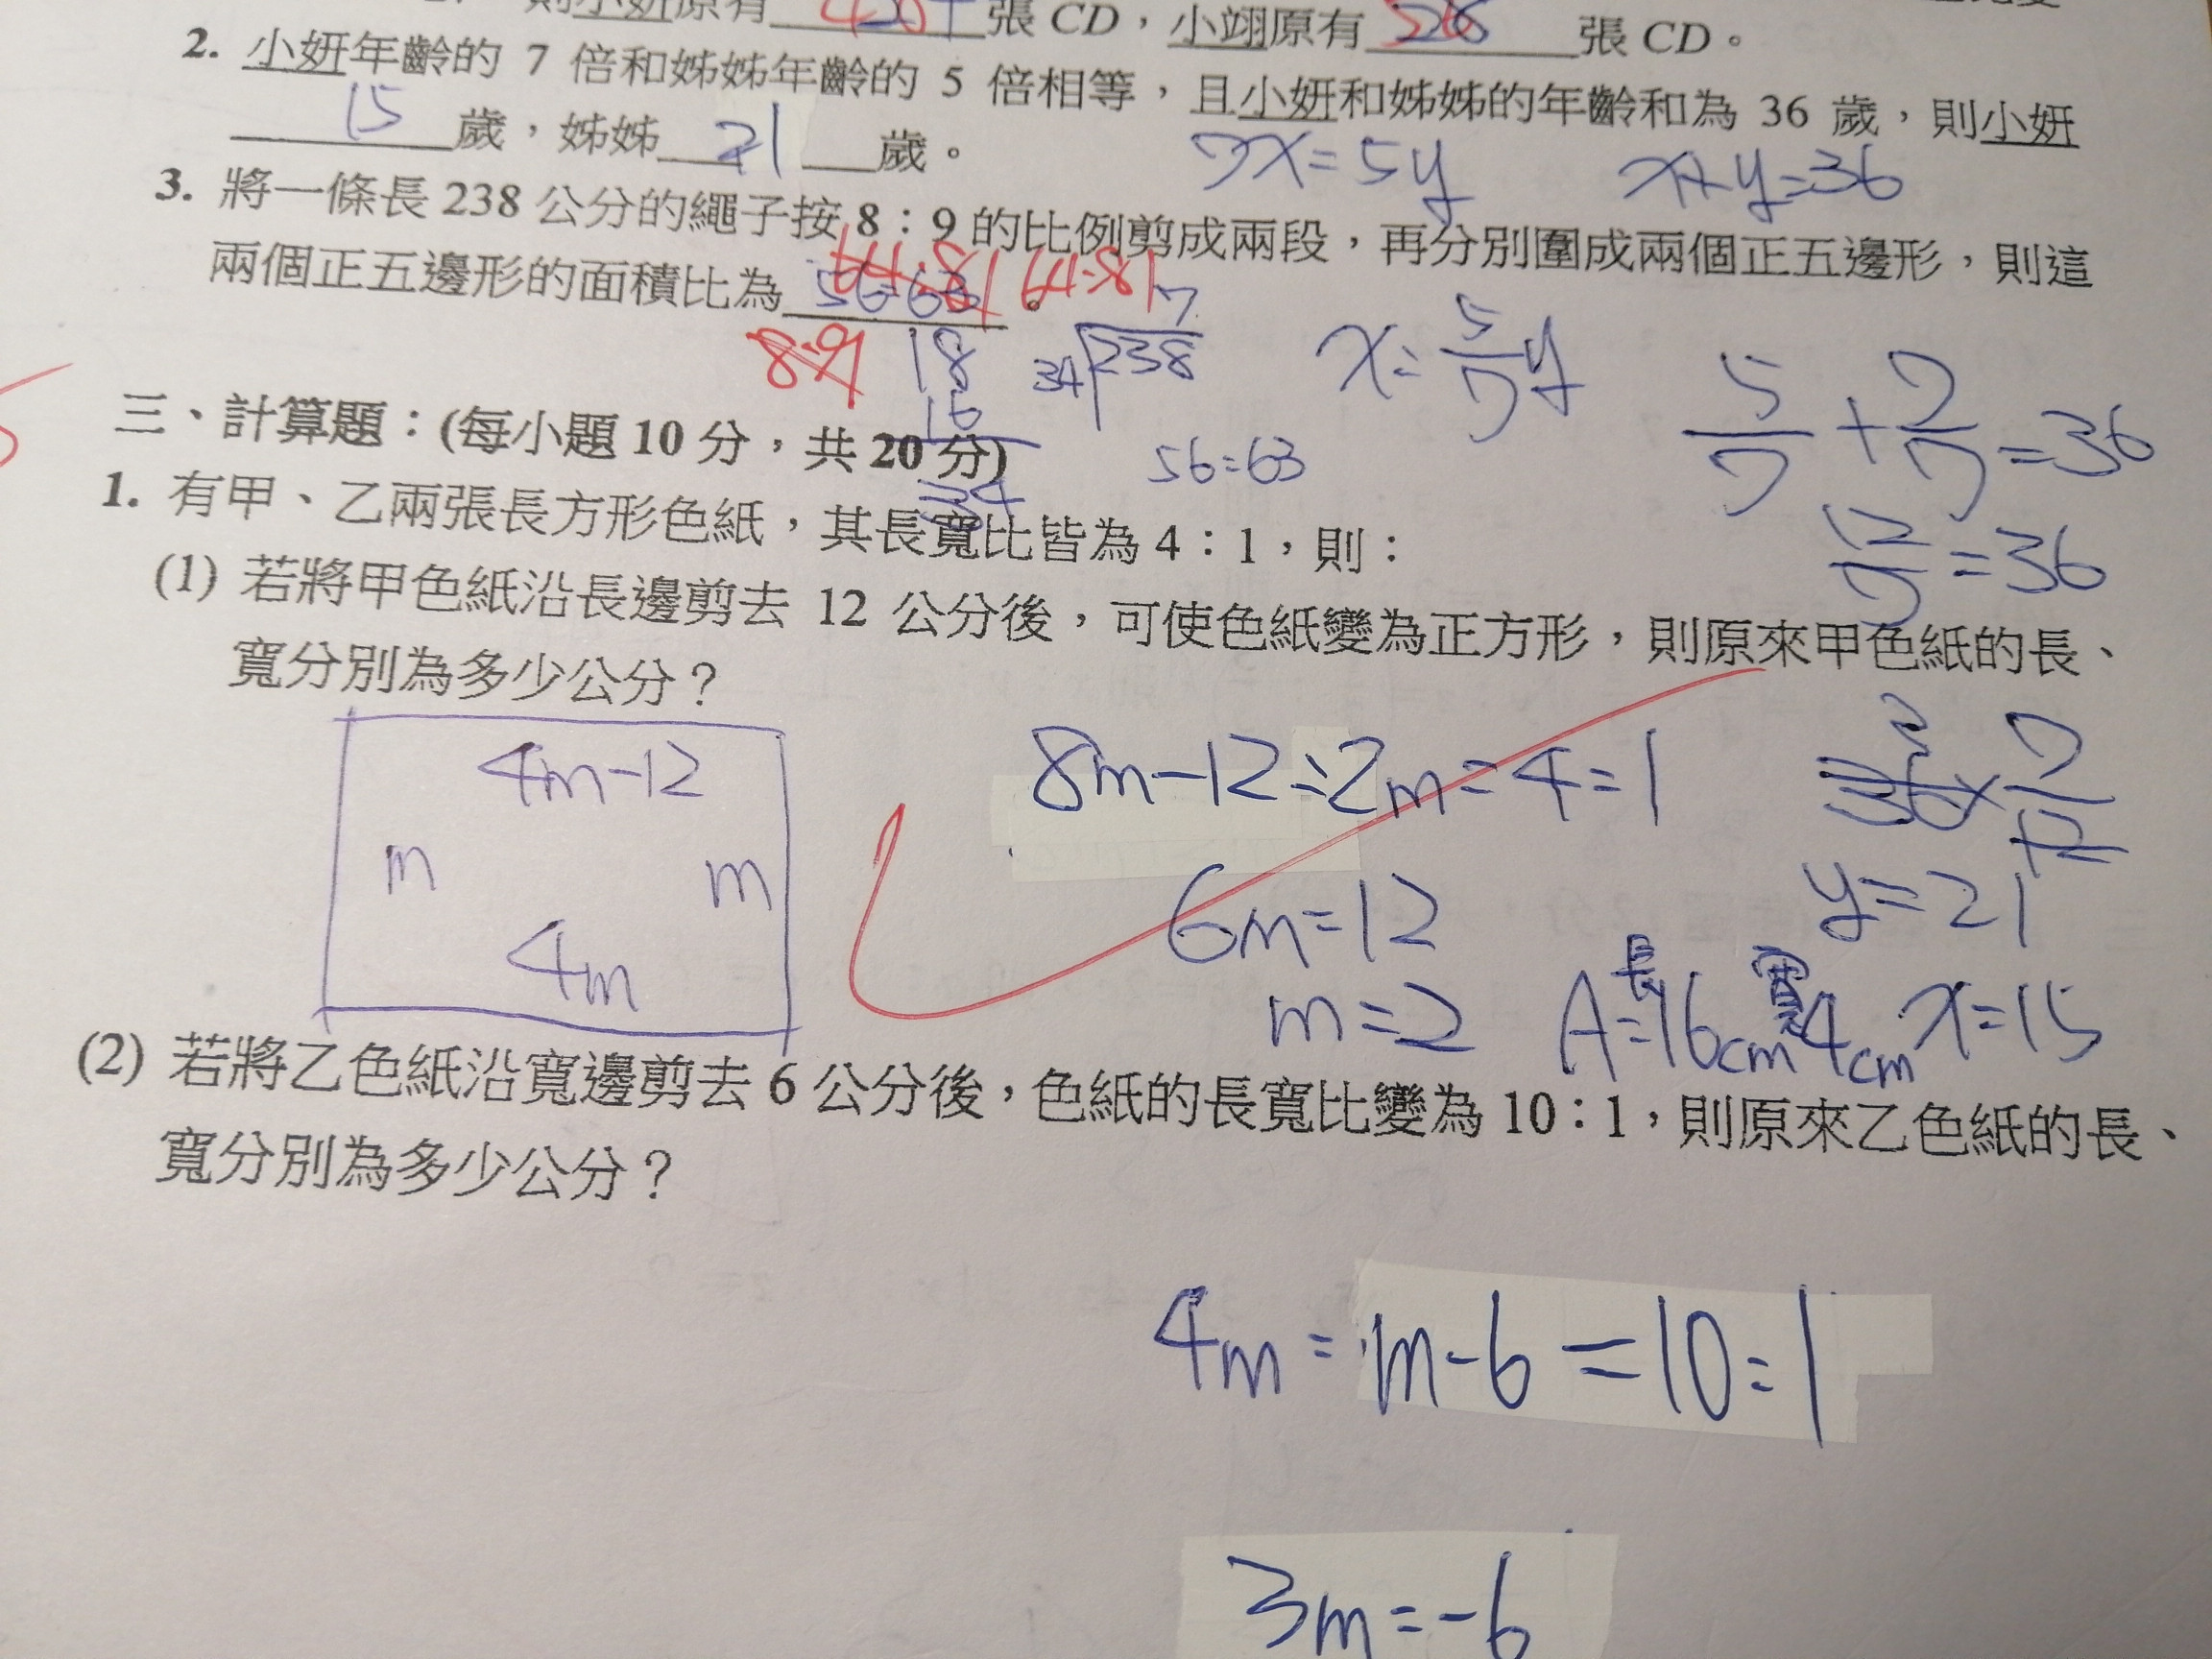 則小妍原有 張 CD，小翊原有 28 張 CD。
2. 小妍年齡的 7 倍和姊姊年齡的 5 倍相等，且小妍和姊姊的年齡和為 36 歲，則小妍
15 歲，姊姊 21 歲。
7x=5y x+y=36
3. 將一條長 238 公分的繩子按 8：9 的比例剪成兩段，再分別圍成兩個正五邊形，則這
兩個正五邊形的面積比為 56:63 。 64:81
8:9 18 7
34 238 x=5/7y
16 5/7+7/7=36
三、計算題：(每小題 10 分，共 20 分)
56:63
34 12/7=36
1. 有甲、乙兩張長方形色紙，其長寬比皆為 4：1，則：
(1) 若將甲色紙沿長邊剪去 12 公分後，可使色紙變為正方形，則原來甲色紙的長、
寬分別為多少公分？
4m-12 8m-12:2m=4:1 36×7/12
m m 6m=12 y=21
4m m=2 A=長16cm 寬4cm x=15
(2) 若將乙色紙沿寬邊剪去 6 公分後，色紙的長寬比變為 10：1，則原來乙色紙的長、
寬分別為多少公分？
4m:m-6=10:1
3m=-6